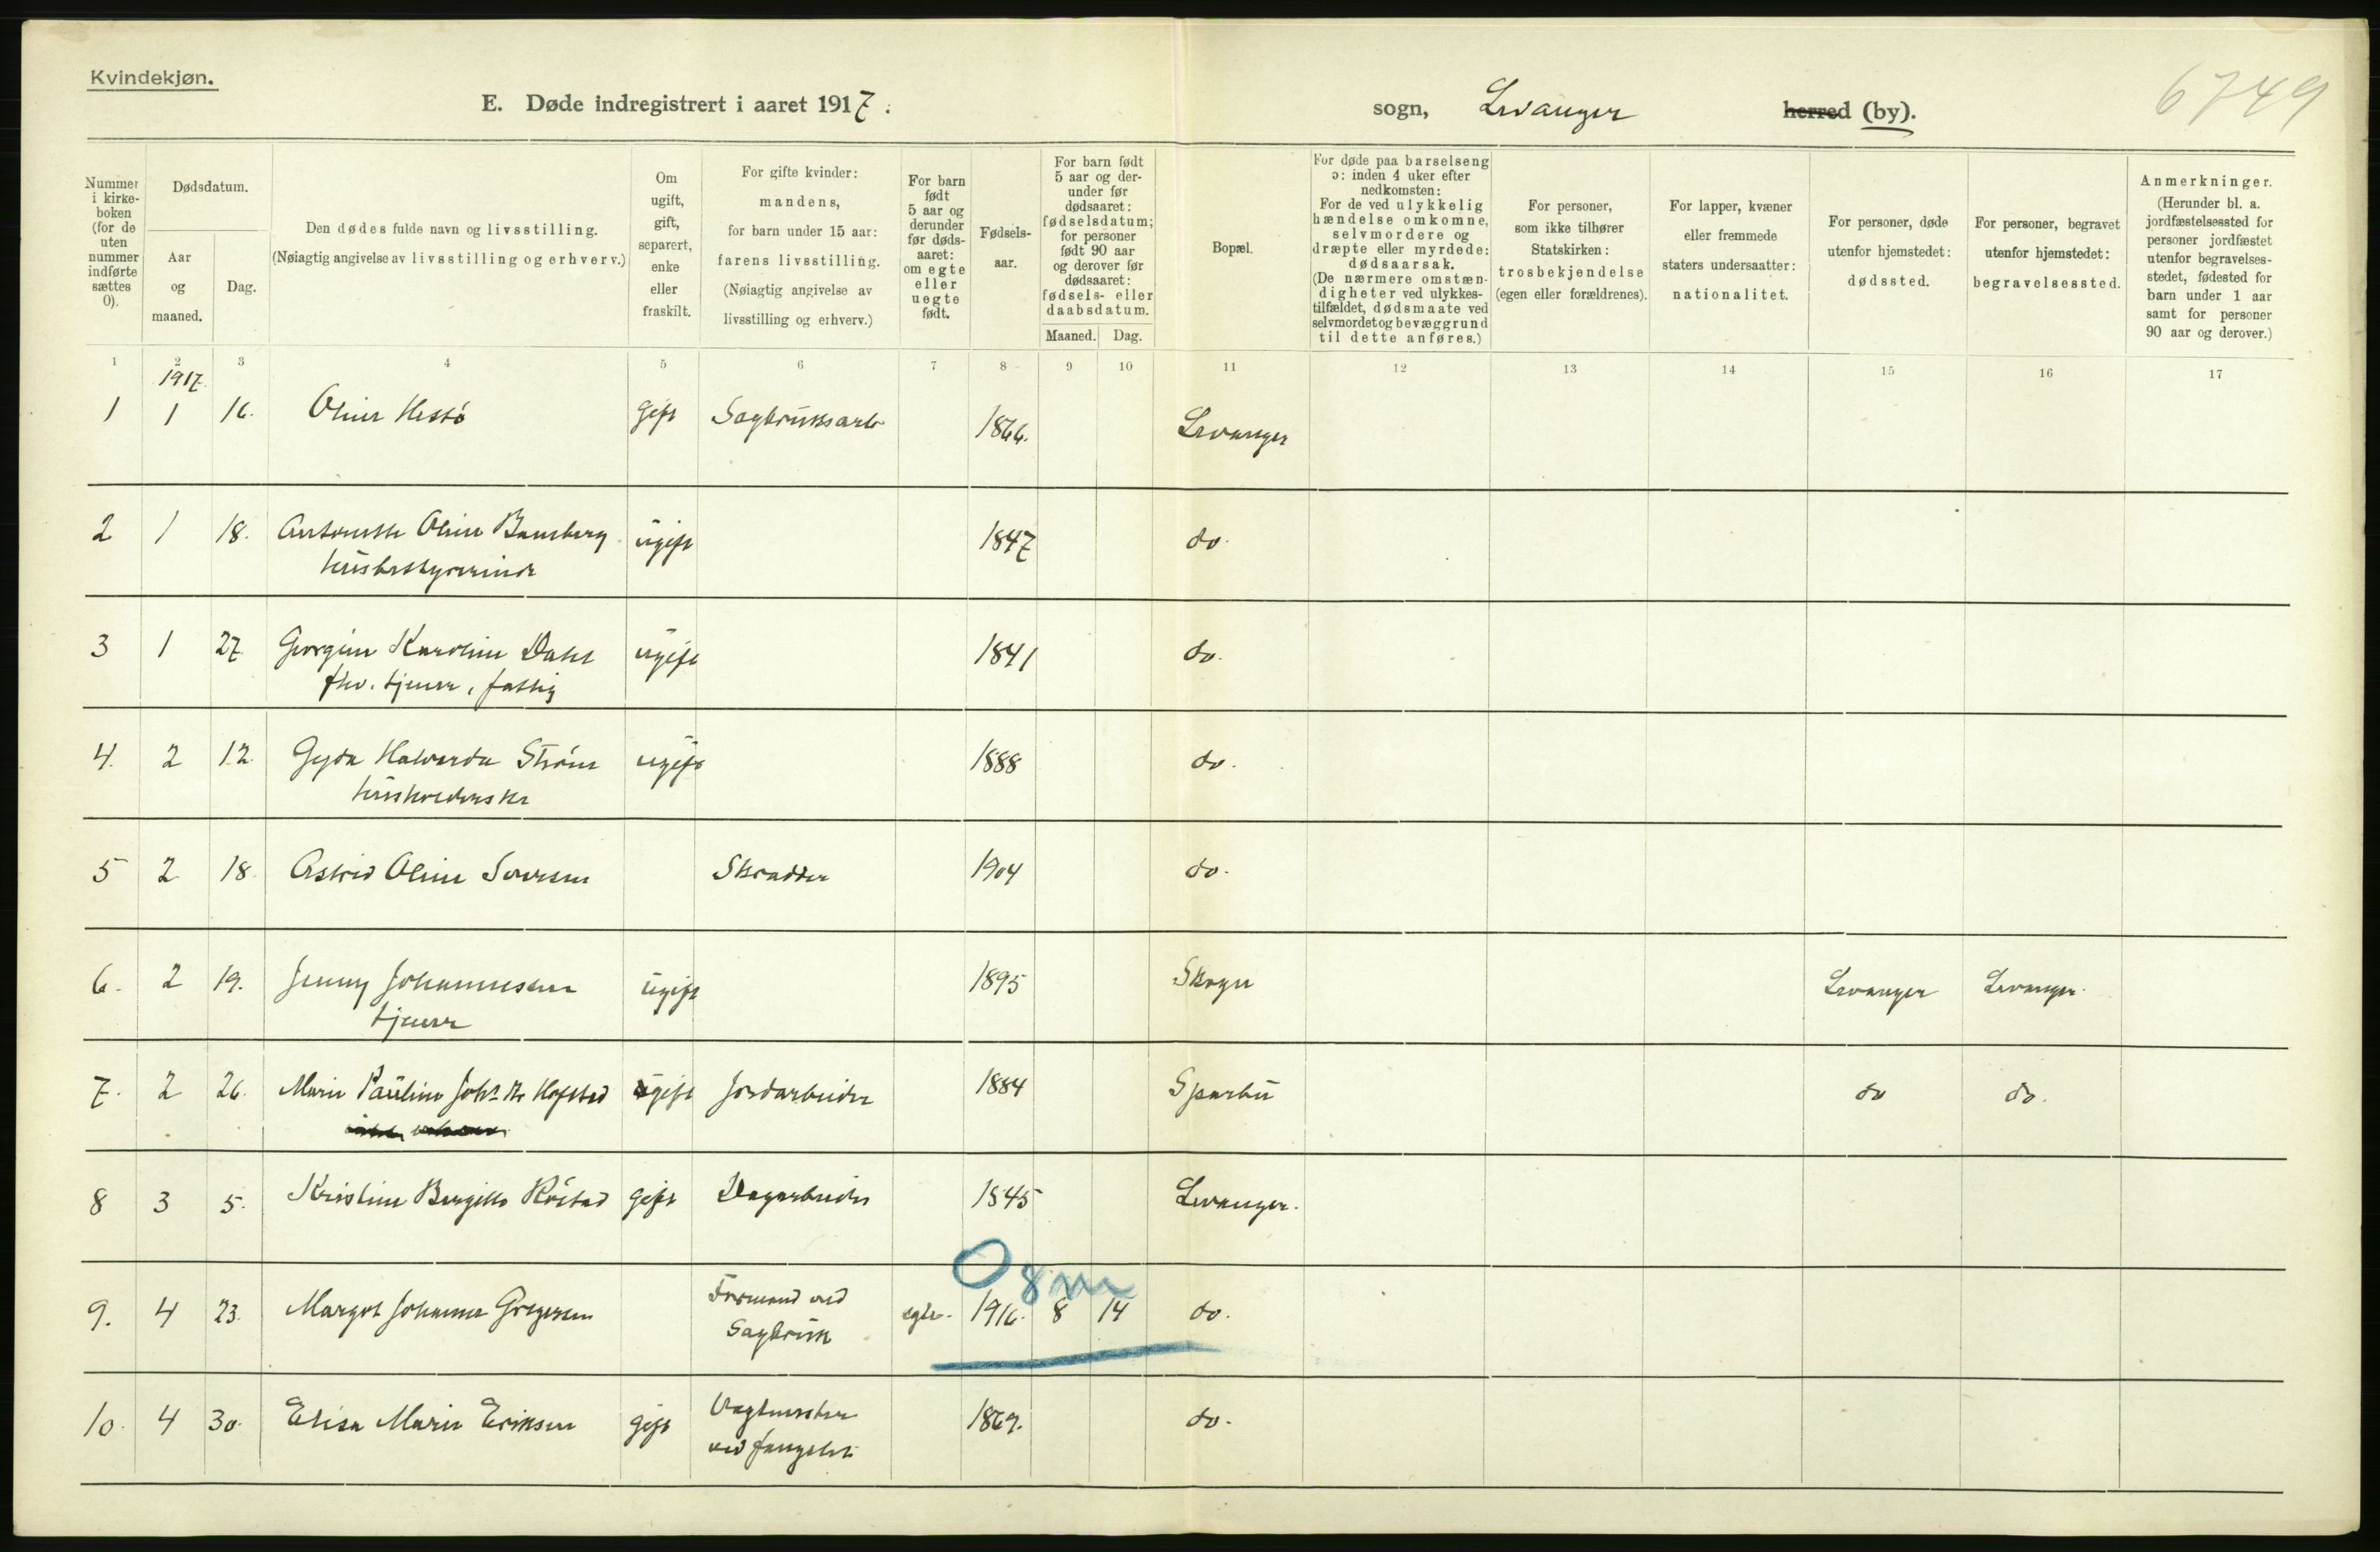 Kvindekjøn.
E. Døde indregistrert i aaret 1917.
sogn, Levanger herred (by).
6749
Nummer i kirkeboken (for de uten nummer indførte sættes 0).
Dødsdatum.
Aar og maaned.
Dag.
Den dødes fulde navn og livsstilling.
(Nøiagtig angivelse av livsstilling og erhverv.)
Om ugift, gift, separert, enke eller fraskilt.
For gifte kvinder: mandens, for barn under 15 aar: farens livsstilling. (Nøiagtig angivelse av livsstilling og erhverv.)
For barn født 5 aar og derunder før dødsaaret: om egte eller uegte født.
Fødselsaar.
For barn født 5 aar og derunder før dødsaaret: fødselsdatum; for personer født 90 aar og derover før dødsaaret: fødsels- eller daabsdatum.
Maaned. Dag.
Bopæl.
For døde paa barselseng ɔ: inden 4 uker efter nedkomsten: For de ved ulykkelig hændelse omkomne, selvmordere og dræpte eller myrdede: dødsaarsak. (De nærmere omstændigheter ved ulykkestilfældet, dødsmaate ved selvmordet og bevæggrund til dette anføres.)
For personer, som ikke tilhører Statskirken: trosbekjendelse (egen eller forældrenes).
For lapper, kvæner eller fremmede staters undersaatter: nationalitet.
For personer, døde utenfor hjemstedet: dødssted.
For personer, begravet utenfor hjemstedet: begravelsessted.
Anmerkninger. (Herunder bl. a. jordfæstelsessted for personer jordfæstet utenfor begravelsesstedet, fødested for barn under 1 aar samt for personer 90 aar og derover.)
1 2 3 4 5 6 7 8 9 10 11 12 13 14 15 16 17
1917.
1 1 16. Oline Hestø gift Sagbruksarb 1866. Levanger
2 1 18. Antonette Oline Bamberg ugift 1847 do.
husbestyrerinde
3 1 27 Georgine Karoline Dahl ugift 1841 do.
fhv. tjener, fattig
4. 2 12. Gyda Halvarda Strøm ugift 1888 do.
husholderske
5 2 18. Astrid Oline Sørensen Skrædder 1904 do.
6. 2 19. Jenny Johannesen ugift 1895 Skogn Levanger Levanger.
tjener
7. 2 26. Marie Pauline Johs. Dtr Hofstad gift Jordarbeider 1884 Sparbu do do.
8 3 5. Kristine Bergitte Røstad gift Dagarbeider 1845 Levanger.
0 8 m
9. 4 23. Margot Johanne Gregersen Formand ved Sagbruk egte. 1916. 8 14 do.
10. 4 30. Elisa Marie Eriksen gift Vagtmester ved fængslet 1869. do.